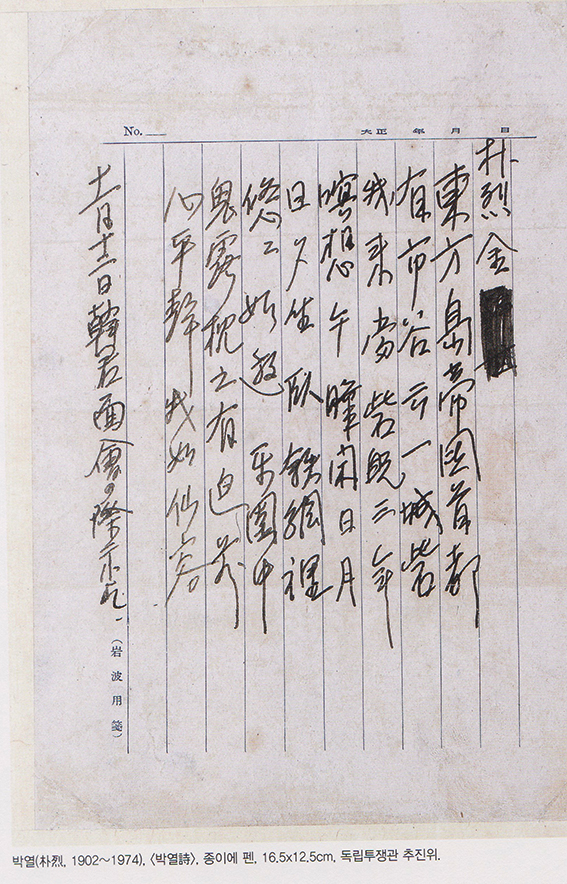 No.
大正 年 月 日
朴烈
東方島帝国首都
有市谷云一城砦
我来当砦既三年
瞑想午睡閑日月
日夕坐臥鉄網裡
悠々如 園中
鬼 枕上有迫
心平静 我如仙客
十一月十二日韓君面會の際示
(岩波用箋)
박열(朴烈, 1902~1974), 〈박열詩〉, 종이에 펜, 16.5x12.5cm, 독립투쟁관 추진위.